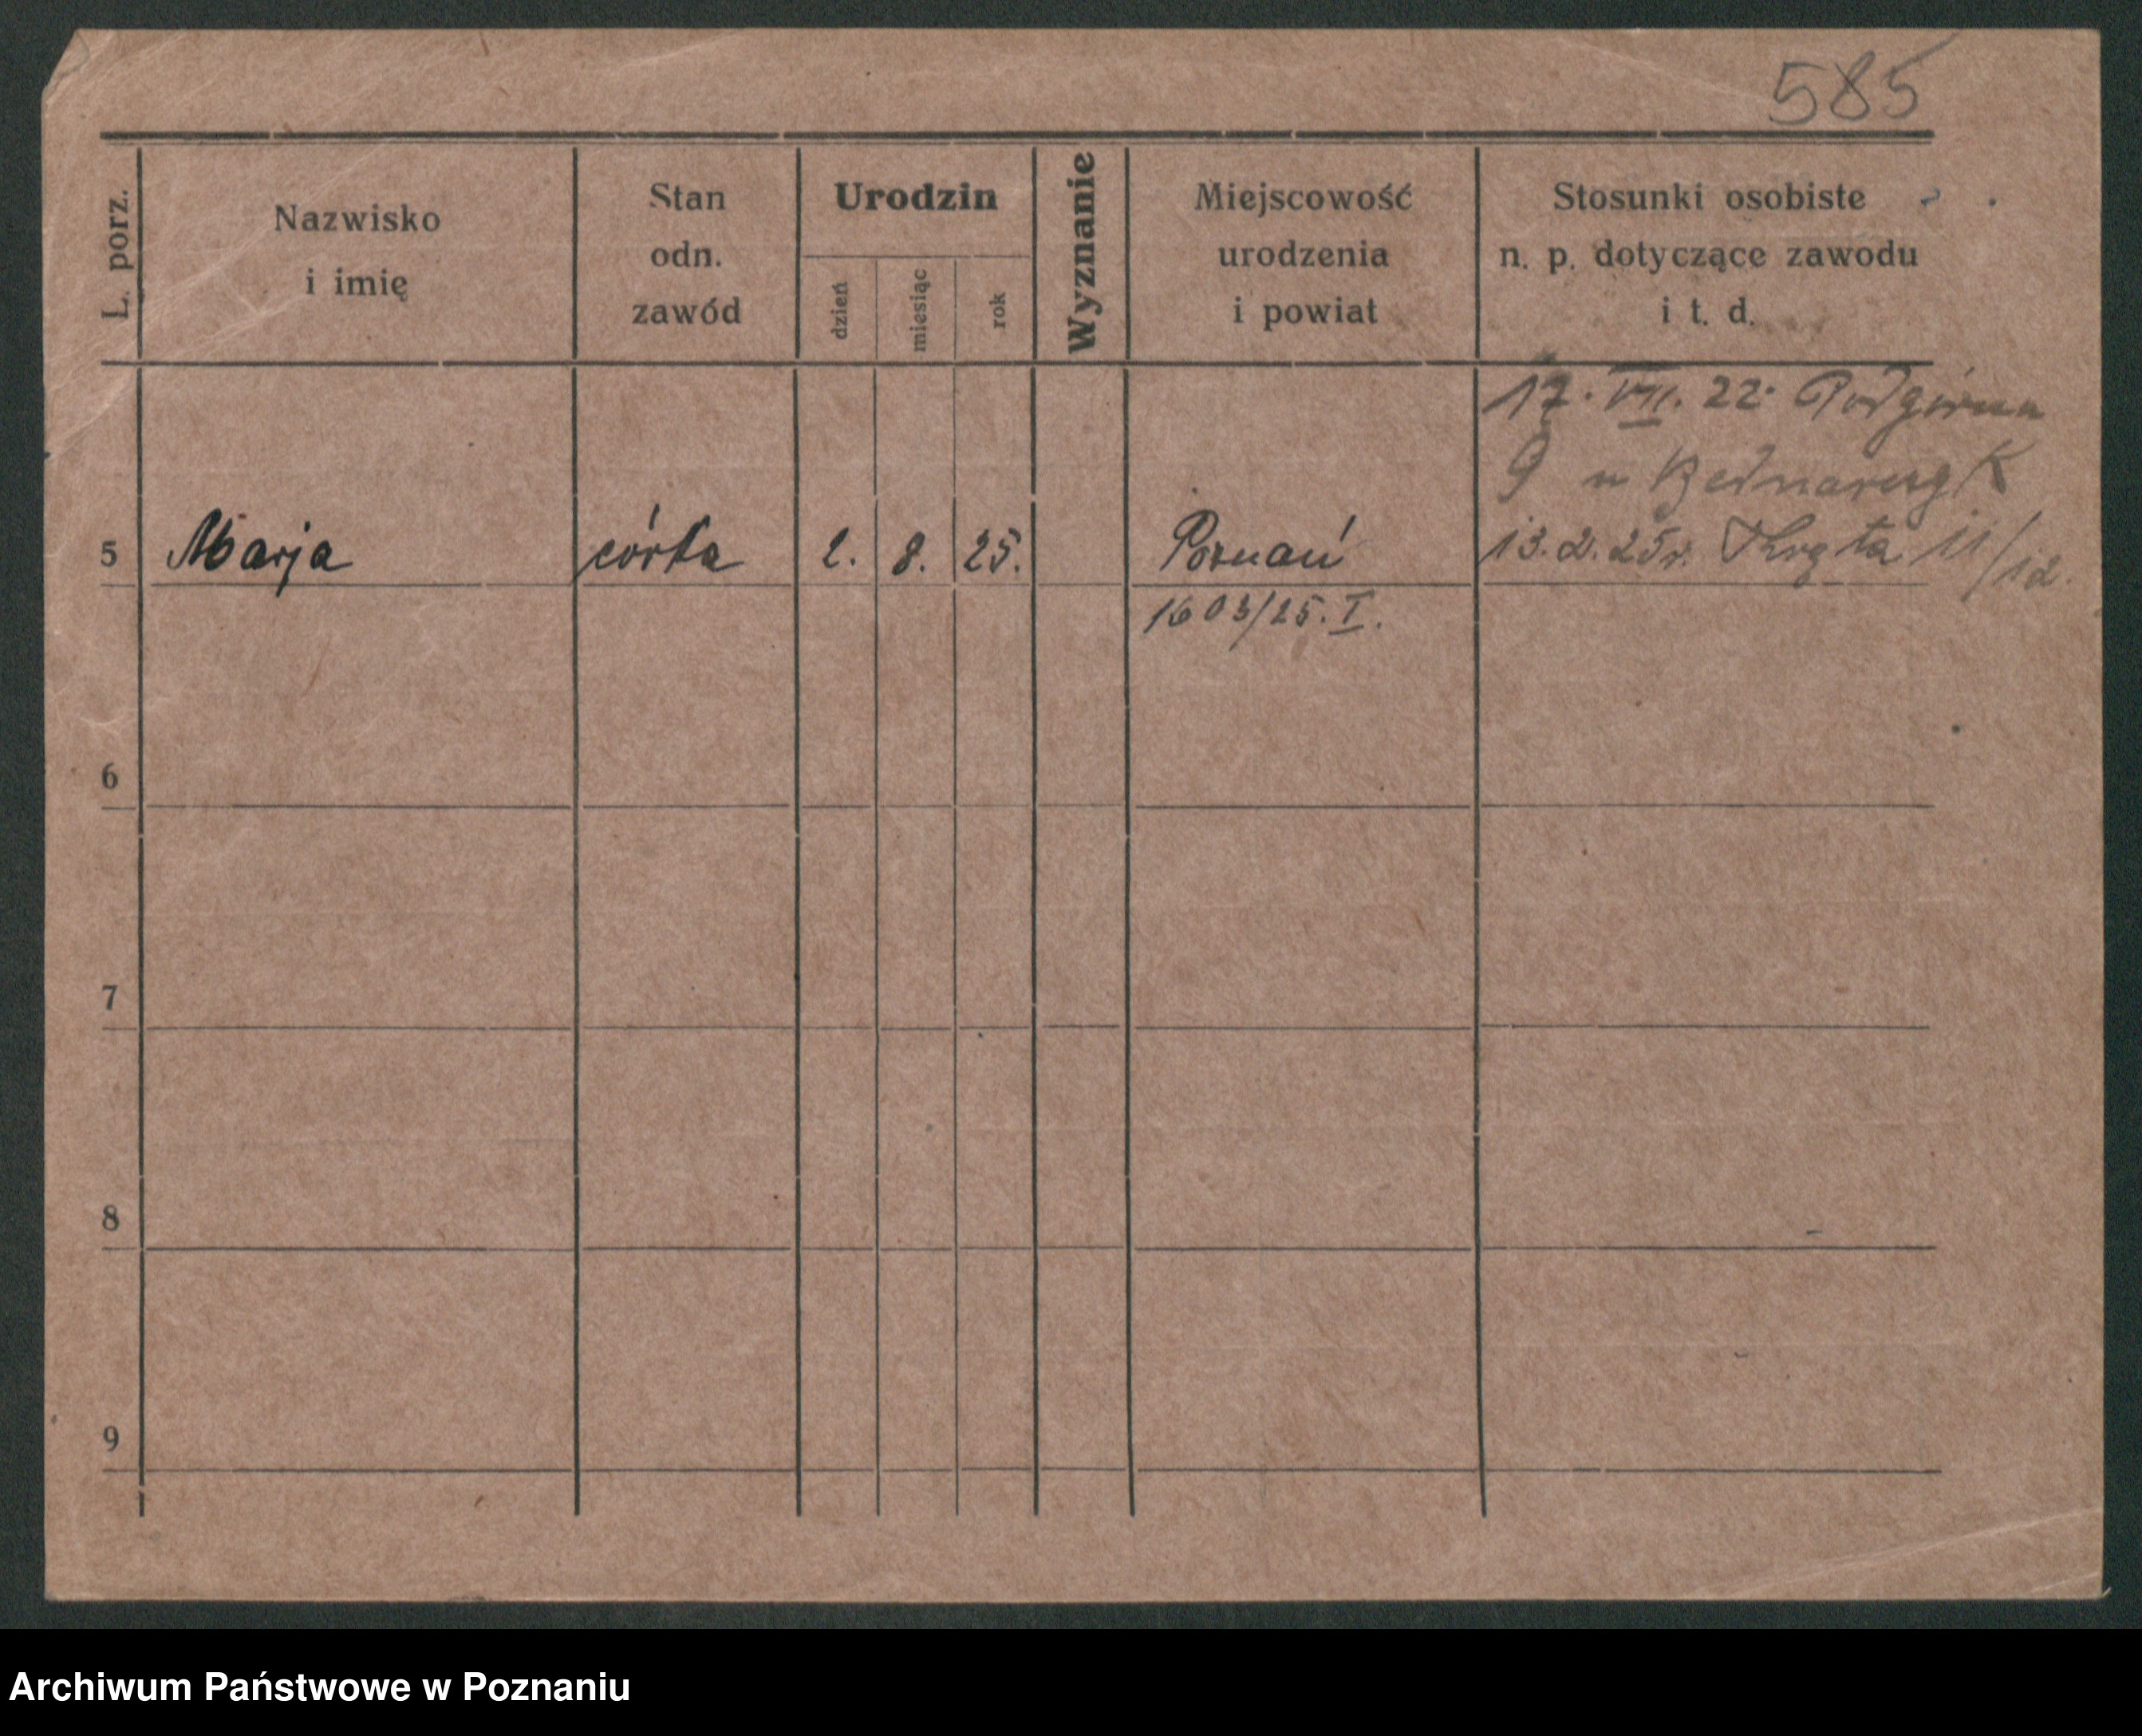 585
L. porz.
Nazwisko
i imię
Stan
odn.
zawód
Urodzin
dzień
miesiąc
rok
Wyznanie
Miejscowość
urodzenia
i powiat
Stosunki osobiste
n. p. dotyczące zawodu
i t. d.
17. VII. 22. Podgórna
9 u Bednarczyk
13.2.25r. Kręta 11/12.
5 Marja córka 2. 8. 25. Poznań
1603/25. I.
6
7
8
9
Archiwum Państwowe w Poznaniu